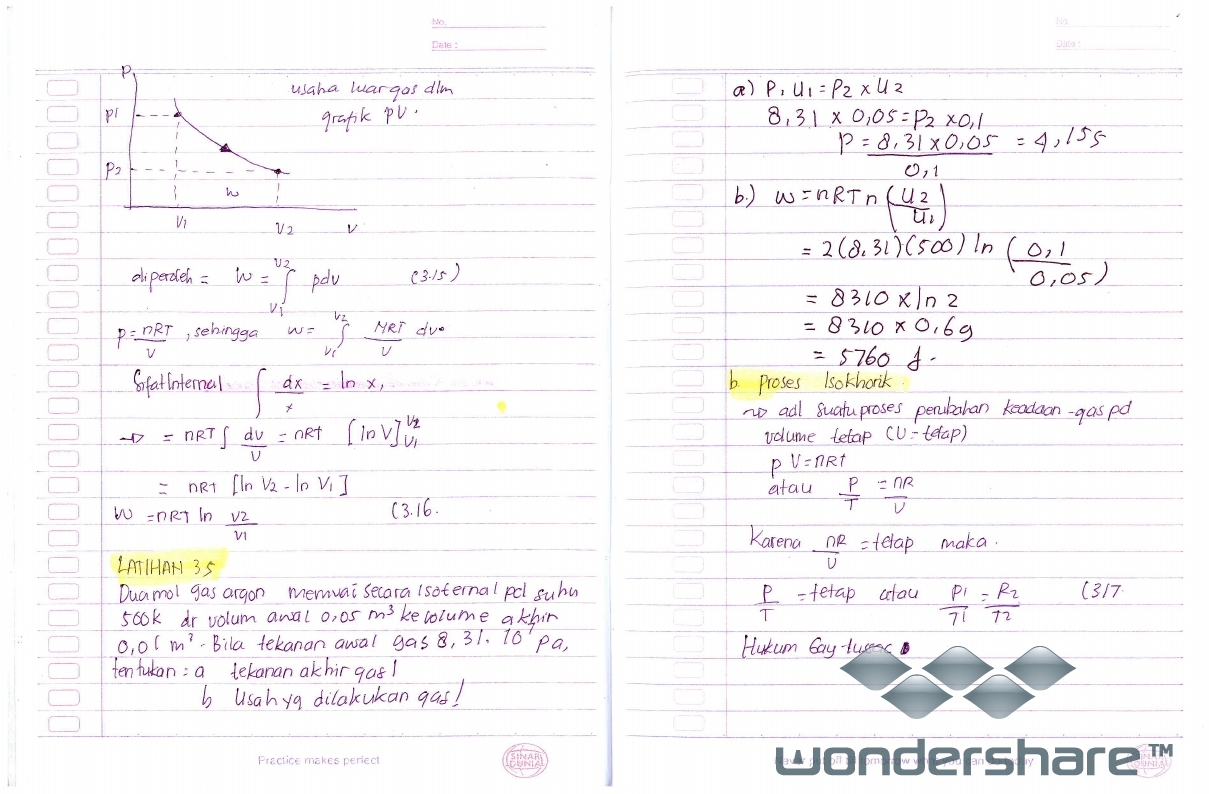 No.
Date :
P
usaha luar gas dlm
grafik PV.
P1
P2
W
V1
V2
V
diperoleh = W = ∫ V1 V2 pdv (3.15)
p = nRT/V , sehingga w = ∫ V1 V2 NRT/V dv.
Sifat Internal ∫ dx/x = ln x,
→ = nRT ∫ dv/V = nRT [ln V] V2 V1
= nRT [ln V2 - ln V1]
W = nRT ln V2/V1 (3.16.
LATIHAN 35
Dua mol gas argon memuai secara Isoternal pd suhu
500k dr volum awal 0,05 m³ ke volume akhir
0,01 m³. Bila tekanan awal gas 8,31. 10 Pa,
tentukan : a tekanan akhir gas!
b Usah yg dilakukan gas!
Practice makes perfect
SINAR DUNIA
No.
Date :
a) P1 U1 = P2 x U2
8,31 x 0,05 = P2 x 0,1
P = 8,31 x 0,05 / 0,1 = 4,155
b.) W = nRT n (U2/U1)
= 2(8,31)(500) ln (0,1/0,05)
= 8310 x ln 2
= 8310 x 0,69
= 5760 J.
b. Proses Isokhorik.
~> adl suatu proses perubahan keadaan - gas pd
volume tetap (U = tetap)
p V = nRT
atau P/T = nR/U
Karena nR/U = tetap maka.
P/T = tetap atau P1/T1 = R2/T2 (317.
Hukum Gay-lussac
wondershare™